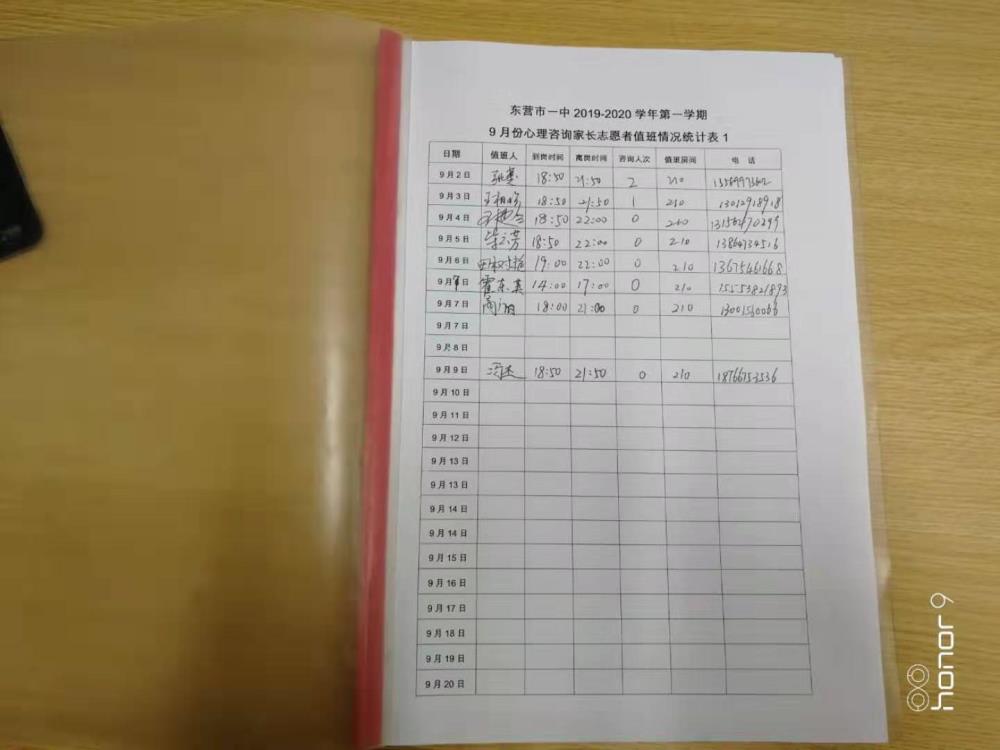 东营市一中 2019-2020 学年第一学期
9 月份心理咨询家长志愿者值班情况统计表 1
日期 值班人 到岗时间 离岗时间 咨询人次 值班房间 电 话
9 月 2 日 18:50 21:50 2 210
9 月 3 日 18:50 21:50 1 210 13012918918
9 月 4 日 18:50 22:00 0 210
9 月 5 日 18:50 22:00 0 210 13864734516
9 月 6 日 19:00 22:00 0 210
9 月 7 日 霍东英 14:00 17:00 0 210 15553821893
9 月 7 日 18:00 21:00 0 210
9 月 7 日
9 月 8 日
9 月 9 日 18:50 21:50 0 210 18766753536
9 月 10 日
9 月 11 日
9 月 12 日
9 月 13 日
9 月 13 日
9 月 14 日
9 月 14 日
9 月 15 日
9 月 16 日
9 月 17 日
9 月 18 日
9 月 19 日
9 月 20 日
honor 9